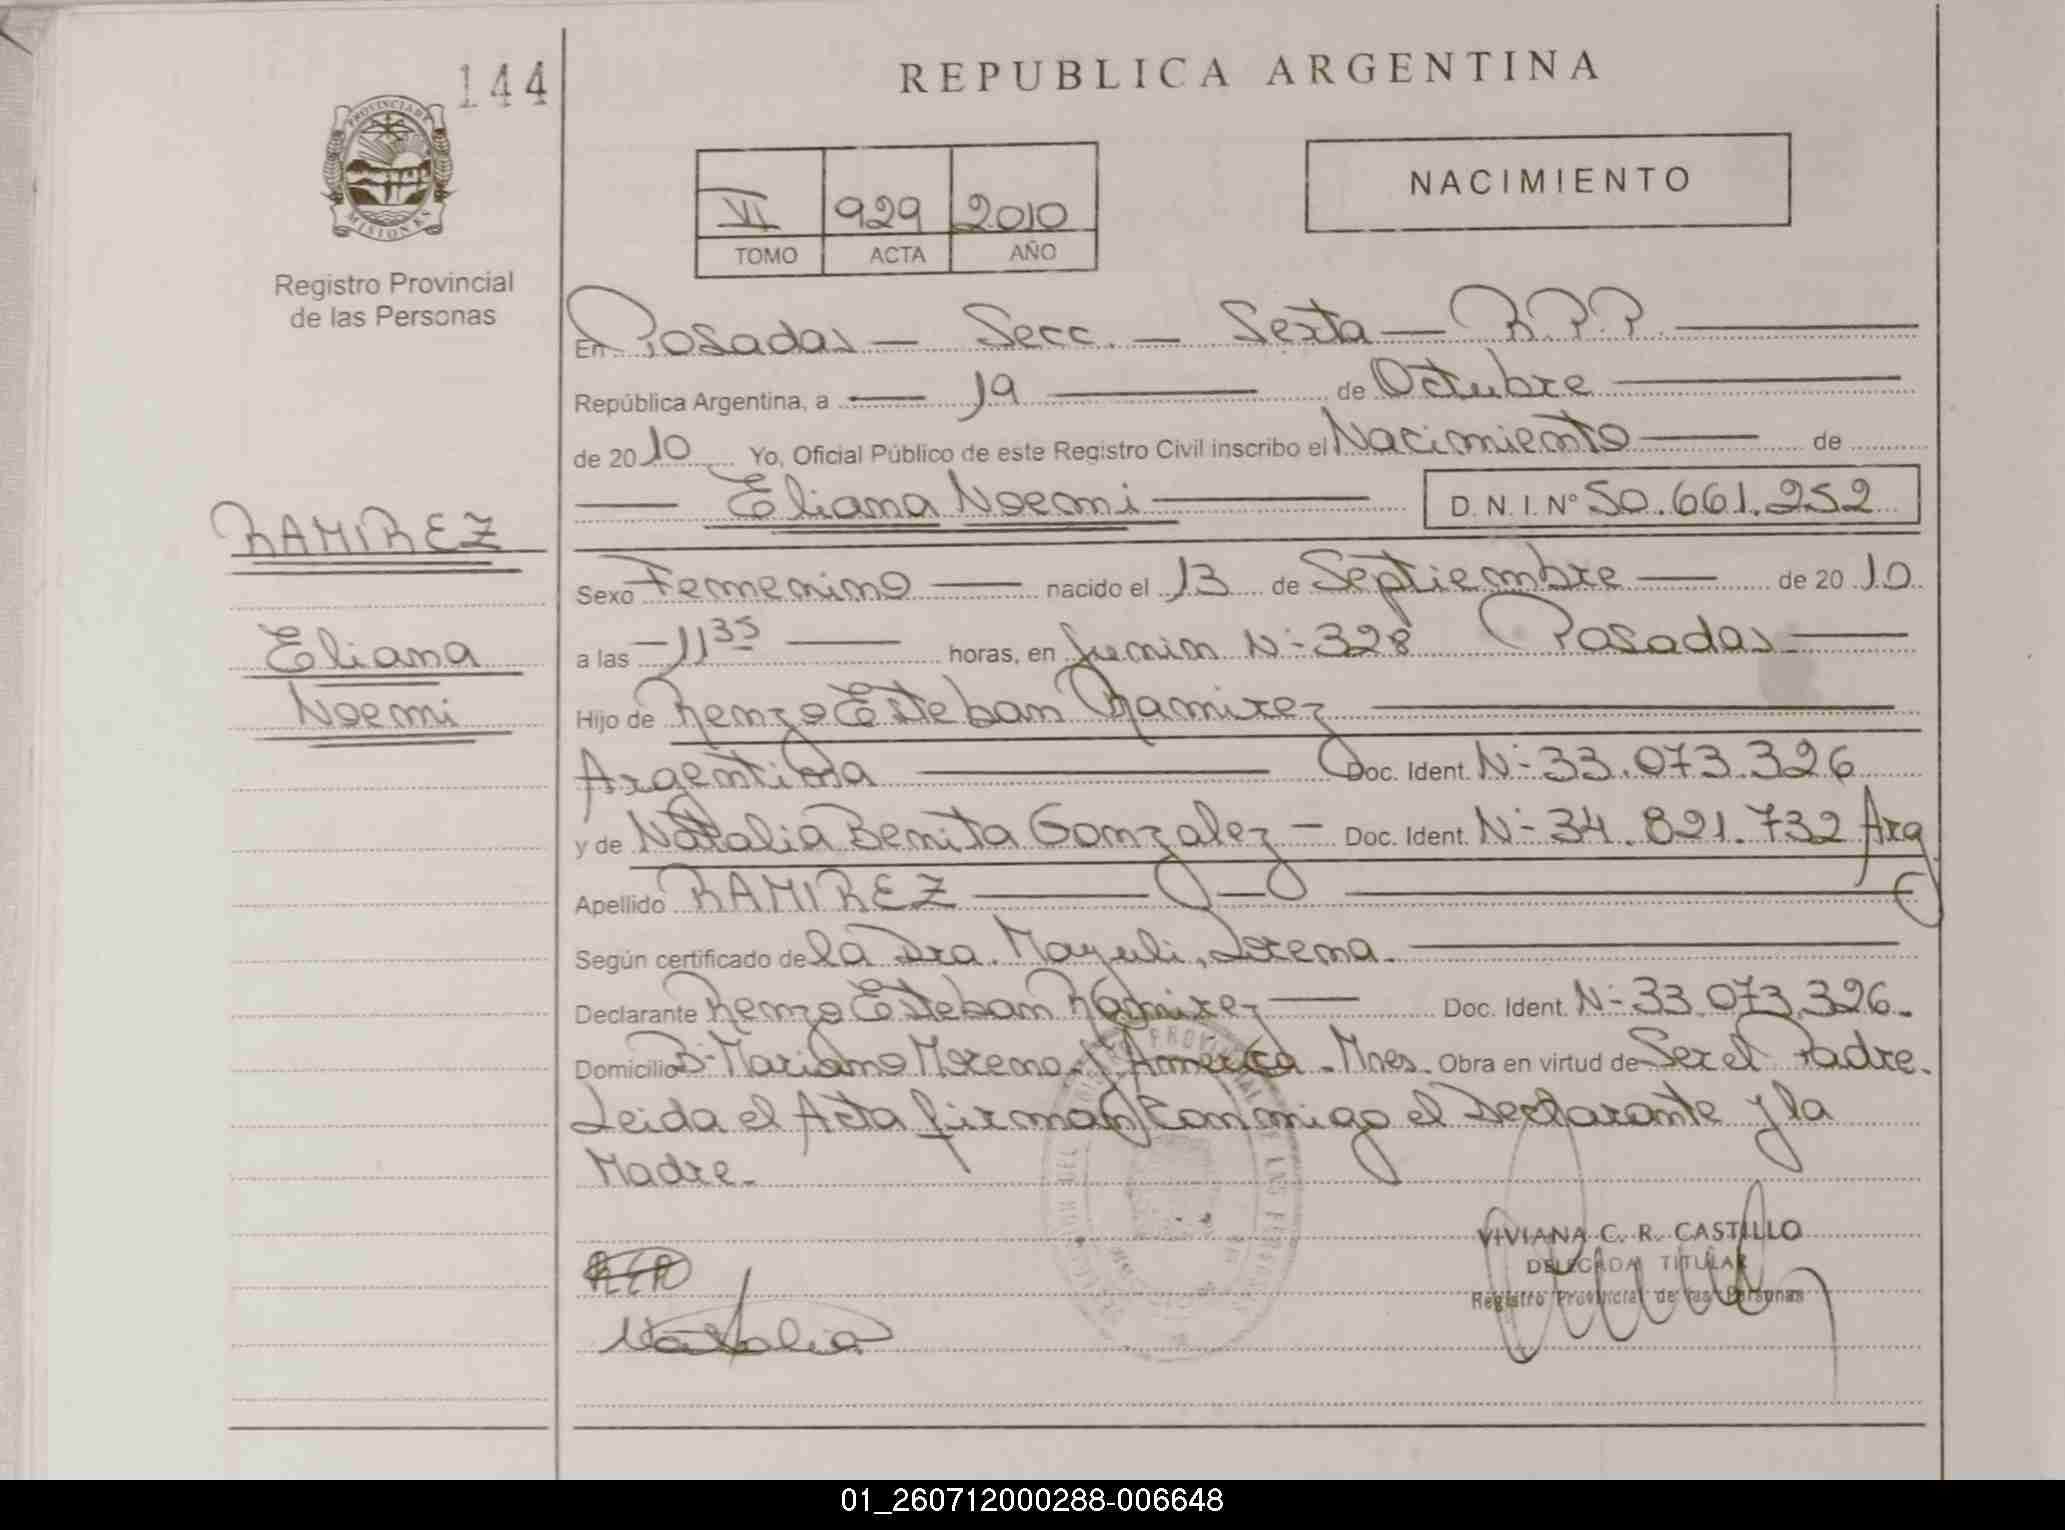 144
REPUBLICA ARGENTINA
PROVINCIA DE
MISIONES
Registro Provincial
de las Personas
VI 929 2010
TOMO ACTA AÑO
NACIMIENTO
En Posadas — Secc. — Sexta — R.P.P.
República Argentina, a — 19 — de Octubre
de 2010 Yo, Oficial Público de este Registro Civil inscribo el Nacimiento — de
— Eliana Noemi — D.N.I. Nº 50.661.252
RAMIREZ
Eliana
Noemi
Sexo Femenino — nacido el 13 de Septiembre — de 2010
a las — 11 35 — horas, en Junin Nº 328 Posadas —
Hijo de Renzo Esteban Ramirez
Argentina — Doc. Ident. Nº 33.073.326
y de Natalia Benita Gonzalez — Doc. Ident. Nº 34.821.732 Arg
Apellido RAMIREZ —
Según certificado de la Dra. Mayuli, Lorena.
Declarante Renzo Esteban Ramirez — Doc. Ident. Nº 33.073.326.
Domicilio Bº Mariano Moreno. America - Mnes. Obra en virtud de Ser el Padre.
Leida el Acta firman conmigo el Declarante y la
Madre.
VIVIANA C. R. CASTILLO
DELEGADA TITULAR
Registro Provincial de las Personas
RER
Natalia
01_260712000288-006648